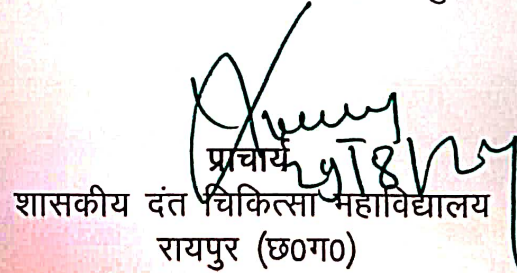 प्राचार्य
शासकीय दंत चिकित्सा महाविद्यालय
रायपुर (छ०ग०)